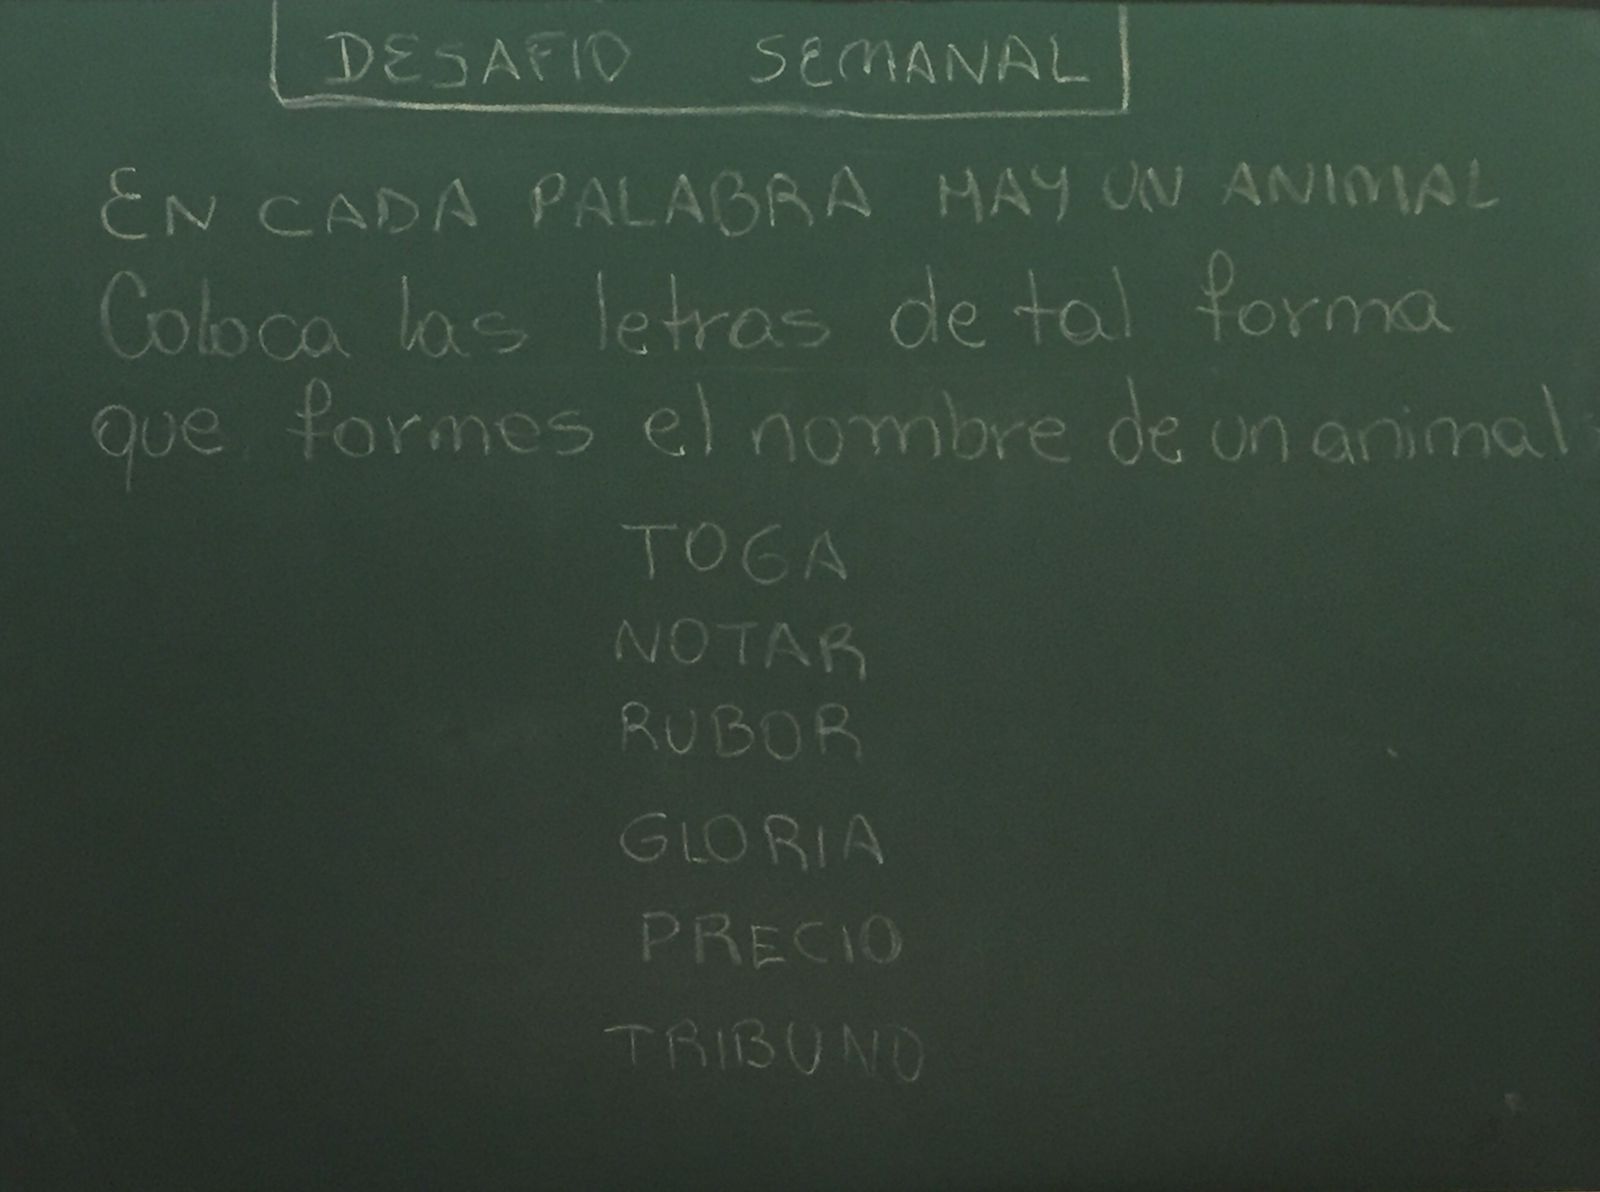 DESAFIO SEMANAL
EN CADA PALABRA HAY UN ANIMAL
Coloca las letras de tal forma
que formes el nombre de un animal
TOGA
NOTAR
RUBOR
GLORIA
PRECIO
TRIBUNO